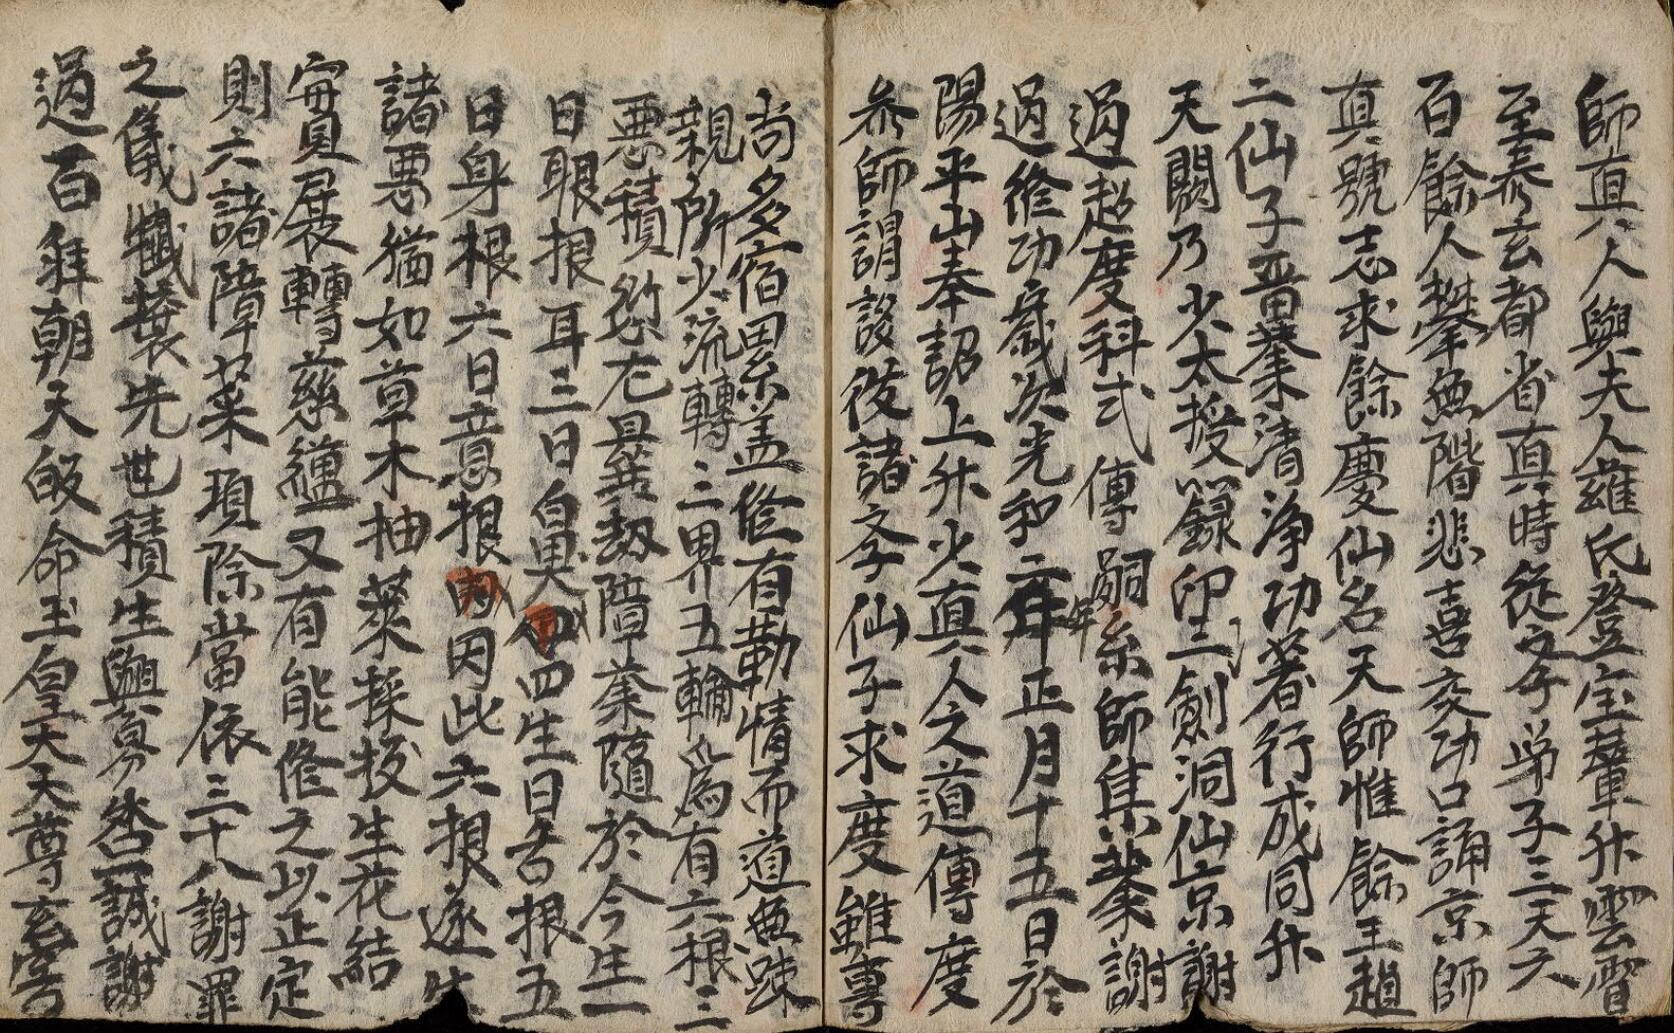 師真人與夫人雍氏登宝輦升雲霄
至泰玄都省真時從之今弟子三天六
百餘人攀無階悲喜交功口誦京師
真號志求餘慶仙名天師惟餘王趙
二仙子晋業清淨功著行成同升
天闕乃少太授錄印二劍洞仙京謝
過超度科式傳嗣系師集業謝
過修功歲次光和二年正月十五日於
陽平山奉詔上升火真人之道傳度
叅師謂設役諸斈仙子求度雖專
尚多宿累盖俗有勤情而道無踈
親所少流轉三界五輪為有六根三
悪積愆尤曇刼障業隨於今生一
日眼根耳三日鼻四生日舌根五
日身根六日意根因此六根逐生
諸悪猶如草木抽葉採技生花結
實展轉慈纏又有能修之以正定
則六諸障業項除當依三十八謝罪
之儀懴襏先世積生與身咎一誠謝
過一百拜朝天皈命玉皇大天尊玄穹